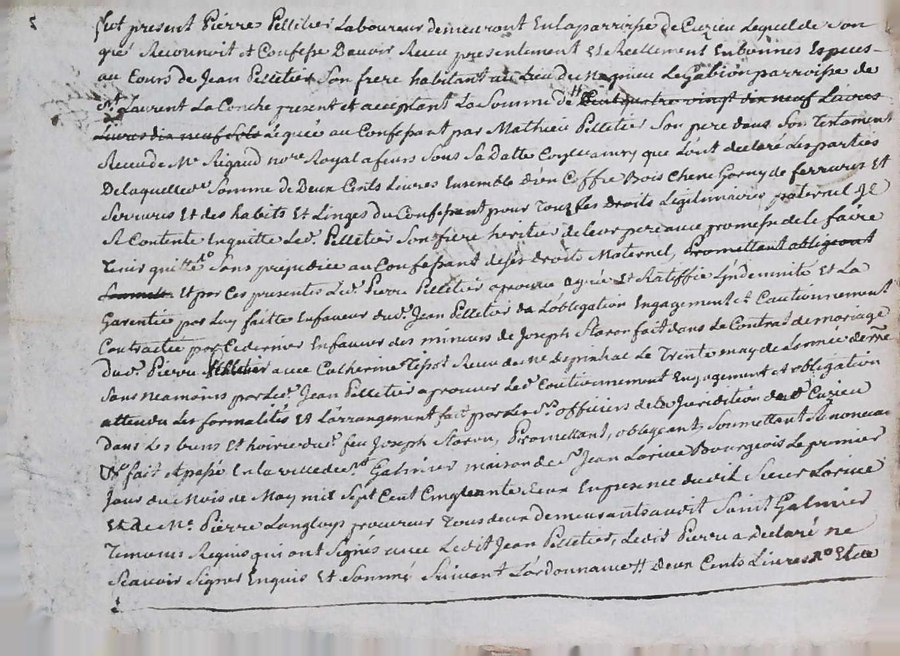 5 fut présent Pierre Pelletier Laboureur demeurant En la parroisse de Cuzieu Lequel de son
gré Reconnoit et Confesse D'avoir Receu presentement Et Reellement En bonnes Especes
au Cours de Jean Pelletier Son frere habitant au Lieu du parroisse de
St Laurent La Conche present et acceptant La Somme de # Cent quatre vingt dix neuf Livres
Livres dix neuf sols Leguée au Confessant par Mathieu Pelletier Son pere dans Son Testament
Receu de Me Rigaud nore Royal a feurs Sous Sa Datte que Lont declaré Les parties
De laquelle Somme de Deux Cents Livres Ensemble D'un Coffre Bois Chene Garny de ferrures Et
Serrures Et des habits Et Linges Du Confessant pour Tous Ses Droits Legitimaires paternel Il
Se Contente En quitte Led. Pelletier Son frere heritier de leur pere avec promesse de le faire
Tenir quitte Sans prejudice au Confessant de ses Droits Maternel, Promettant obligeant
Et par Ces presentes Led. Pierre Pelletier aprouve agrée Et Ratiffie L'indemnité Et La
Garentie par Luy faitte En faveur dud. Jean Pelletier de L'obligation Engagement et Cautionnement
Contractée par Ce dernier En faveur des mineurs de Joseph Staron fait dans Le Contrat de mariage
dud. Pierre Pelletier avec Catherine Receu de Me Le Trente may de L'année
Sans neamoins par Led. Jean Pelletier aprouver Led. Cautionnement Engagement et obligation
attendu Les formalités Et L'arrangement fait par Les officiers de La Juridition de Cuzieu
dans Les biens Et hoirie du feu Joseph Staron, Promettant, obligeant, Soumettant Renoncant
fait et passé En la ville de St Galmier maison de Sr Jean Lorive Bourgeois Le premier
Jour du Mois de May mil Sept Cent Cinquante deux En presence dudit Sieur Lorive
Et de Me Pierre Langloys procureur Tous deux demeurants audit Saint Galmier
Temoins Requis qui ont Signés avec Ledit Jean Pelletier, Ledit Pierre a Declaré ne
Scavoir Signer Enquis Et Sommé Suivant L'ordonnance # Deux Cents Livres